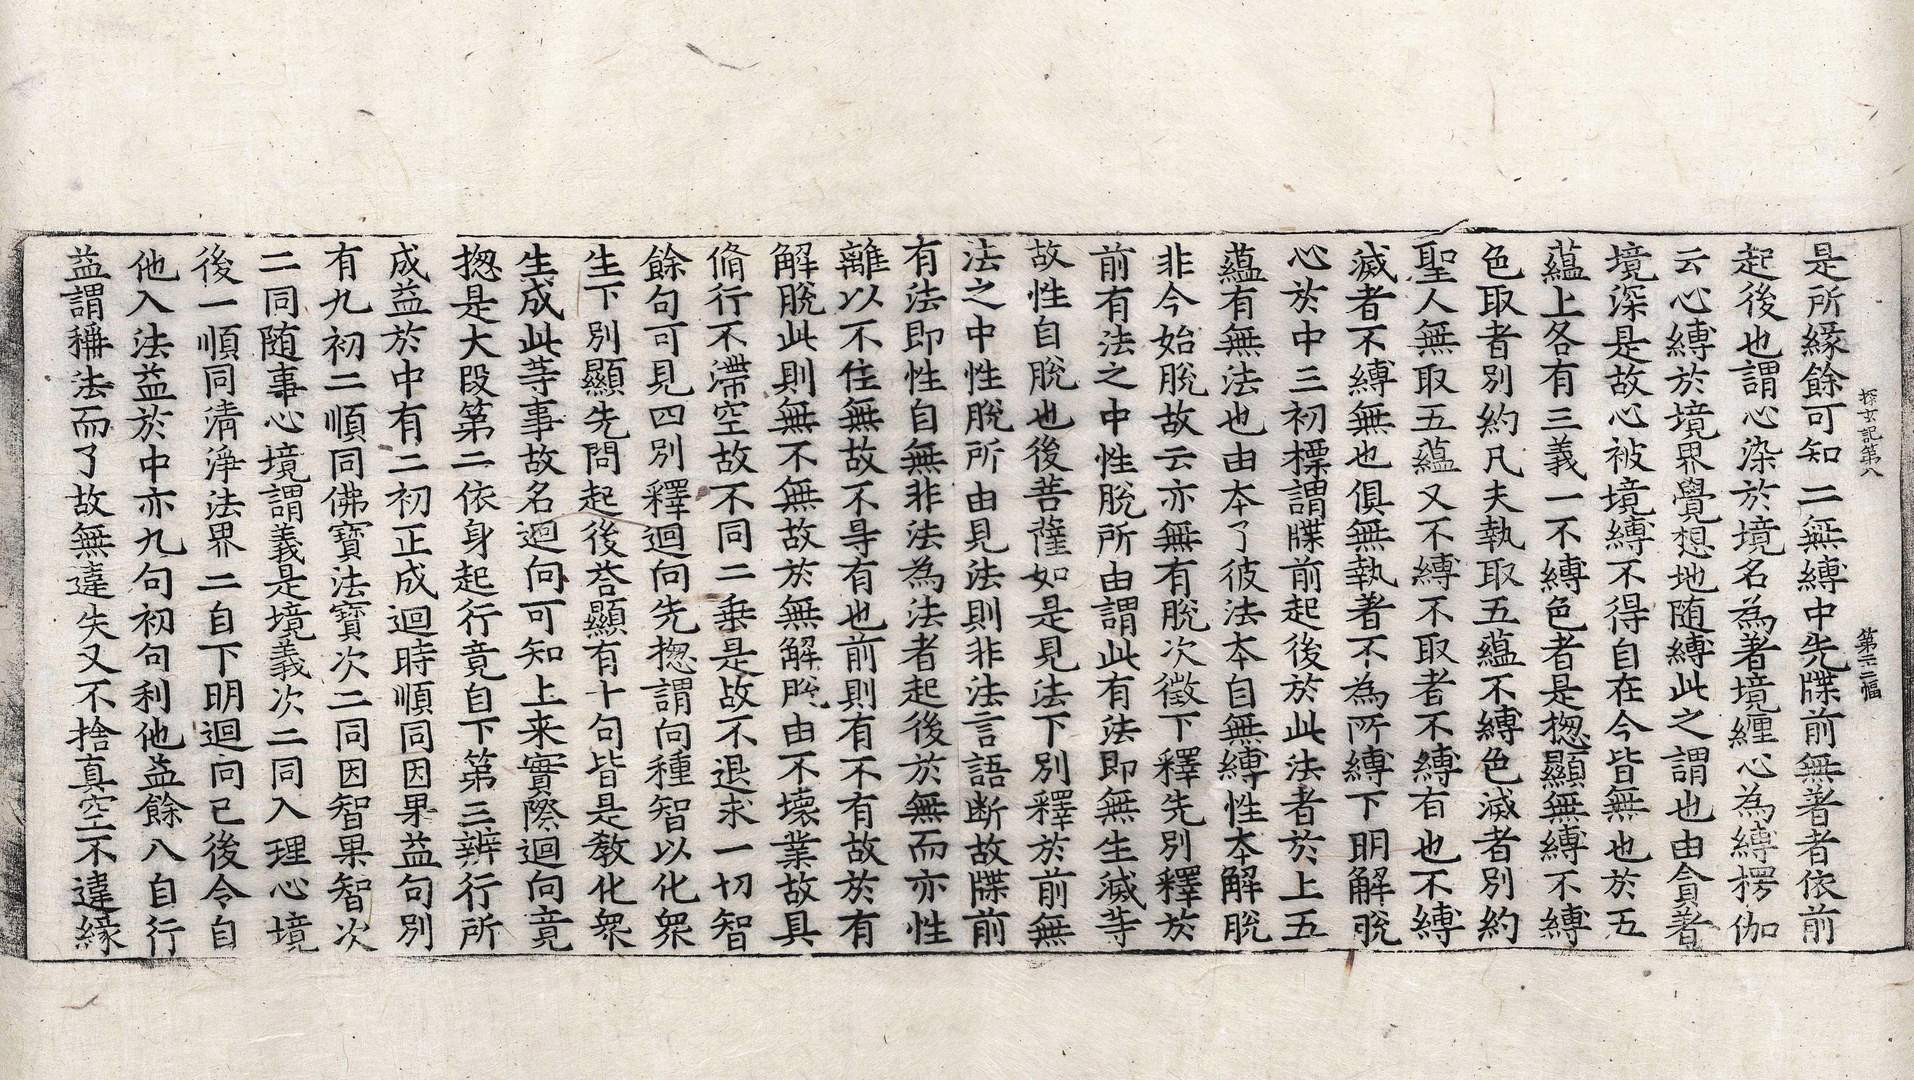 探玄記第八
第三十二幅
是所緣餘可知二無縛中先牒前無著者依前
起後也謂心染於境名為著境纏心為縛楞伽
云心縛於境界覺想地随縛此之謂也由貪著
境深是故心被境縛不得自在今皆無也於五
蘊上各有三義一不縛色者是揔顯無縛不縛
色取者別約凡夫執取五蘊不縛色滅者別約
聖人無取五蘊又不縛不取者不縛有也不縛
滅者不縛無也俱無執著不為所縛下明解脫
心於中三初標謂牒前起後於此法者於上五
蘊有無法也由本了彼法本自無縛性本解脫
非今始脫故云亦無有脫次徵下釋先別釋於
前有法之中性脫所由謂此有法即無生滅等
故性自脫也後菩薩如是見法下別釋於前無
法之中性脫所由見法則非法言語断故牒前
有法即性自無非法為法者起後於無而亦性
離以不住無故不㝵有也前則有不有故於有
解脫此則無不無故於無解脫由不壞業故具
脩行不滯空故不同二乗是故不退求一切智
餘句可見四別釋迴向先揔謂向種智以化衆
生下別顯先問起後荅顯有十句皆是教化衆
生成此等事故名迴向可知上来實際迴向竟
揔是大段第二依身起行竟自下第三辨行所
成益於中有二初正成迴時順同因果益句別
有九初二順同佛寶法寶次二同因智果智次
二同随事心境謂義是境義次二同入理心境
後一順同清淨法界二自下明迴向已後令自
他入法益於中亦九句初句利他益餘八自行
益謂稱法而了故無違失又不捨真空不違緣